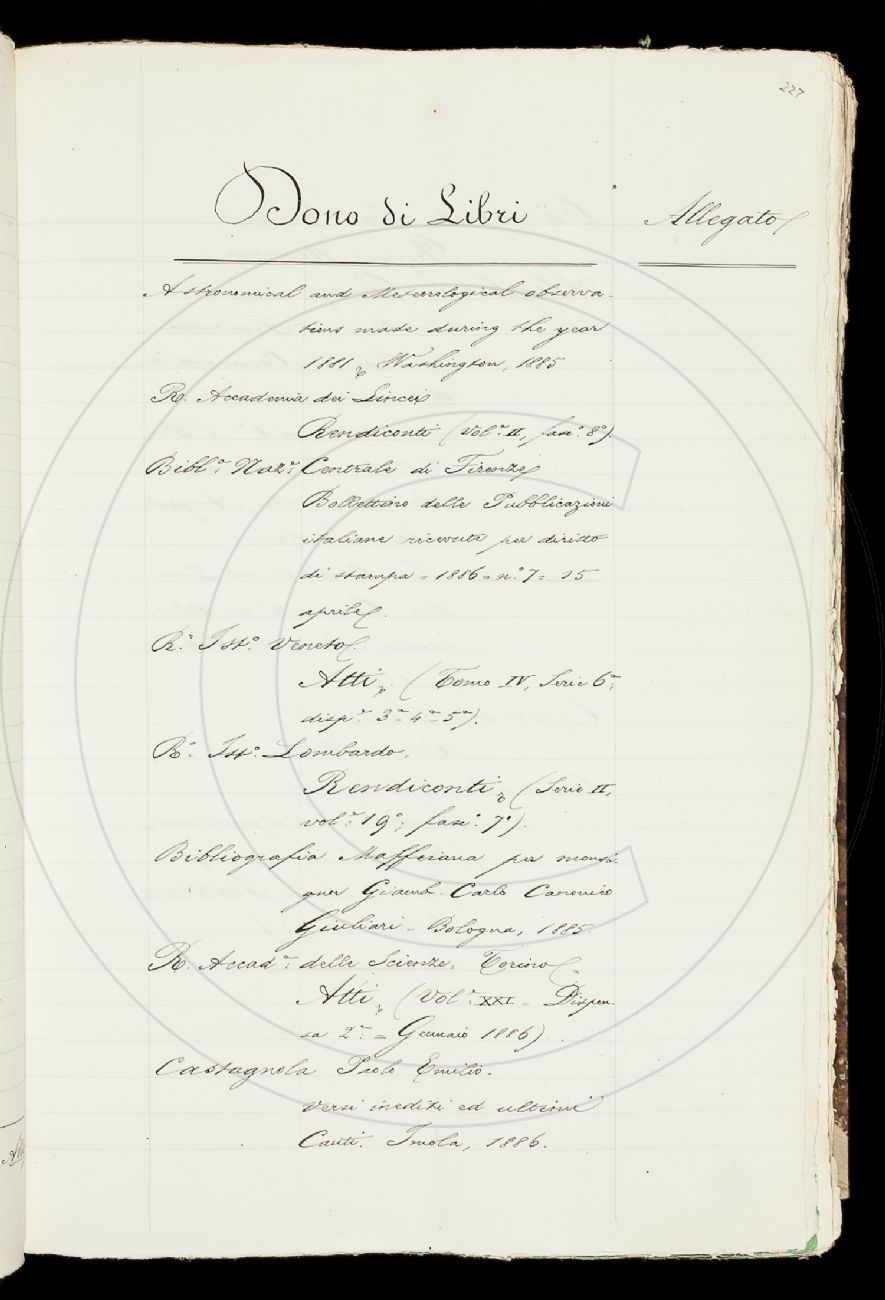 227
Dono di Libri
Allegato
Astronomical and Meteorological observa-
tions made during the year
1881, Washington, 1885
R. Accademia dei Lincei
Rendiconti (Vol.e II, fasc.o 8o).
Bibl.a Naz.e Centrale di Firenze
Bollettino delle Pubblicazioni
italiane ricevute per diritto
di stampa = 1886 = n.o 7 = 15
aprile.
R.o Ist.o Veneto.
Atti, (Tomo IV, Serie 6a,
disp.e 3a- 4a- 5a).
R.o Ist.o Lombardo.
Rendiconti, (Serie II,
vol.e 19o, fasc.o 7o).
Bibliografia Maffeiana per monsi-
gnor Giamb. Carlo Canonico
Giuliari - Bologna, 1885.
R. Accad.a delle Scienze. Torino.
Atti, (Vol.e XXI = Dispen-
sa 2a = Gennaio 1886).
Castagnola Paolo Emilio.
Versi inediti ed ultimi
Canti. Imola, 1886.